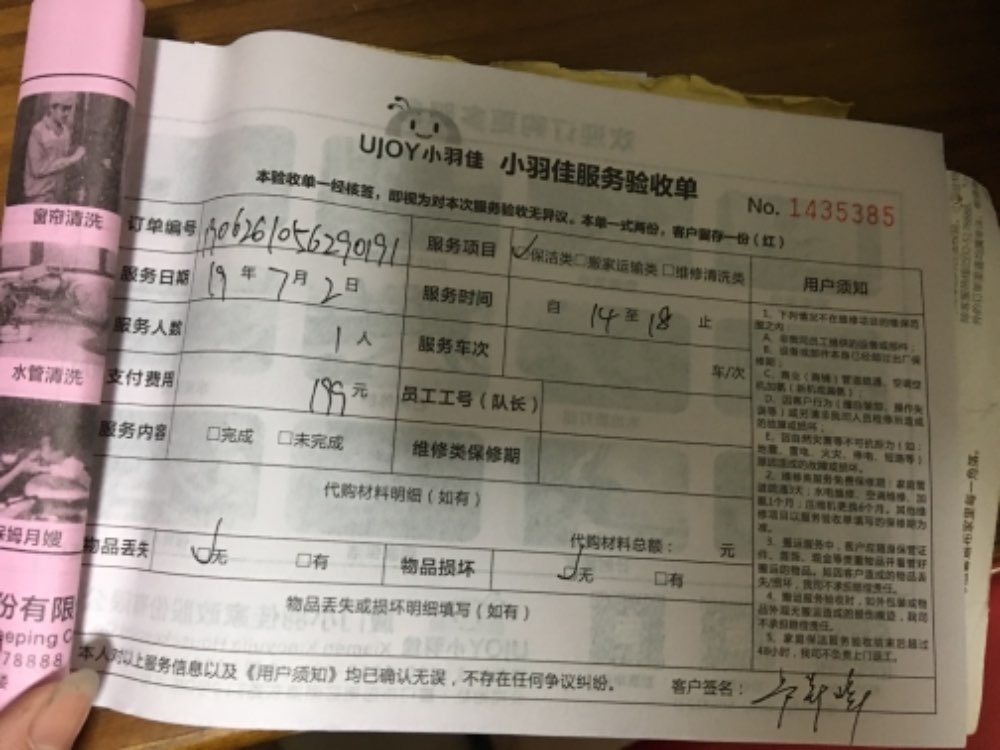 UJOY小羽佳 小羽佳服务验收单
本验收单一经核签，即视为对本次服务验收无异议。本单一式两份，客户留存一份（红）
No. 1435385
订单编号 1906261056290191 服务项目 ✓保洁类□搬家运输类□维修清洗类 用户须知
服务日期 19年7月2日 服务时间 自 14 至 18 止
服务人数 1人 服务车次 车/次
支付费用 199元 员工工号（队长）
服务内容 □完成 □未完成 维修类保修期
1、下列情况不在维修项目的维保范围之内：
A、非我司员工提供的设备或部件；
B、设备或部件本身已经超过出厂保修期；
C、商业（商铺）管道疏通、空调空机加氨（新机或漏氨）；
D、因客户行为（擅自装卸、操作失误等）或另请非我司人员检修所造成的故障或损坏；
E、因自然灾害等不可抗原力（如：地震、雷电、火灾、停电、短路等）原因造成的故障或损坏。
2、维修类服务免费保修期：家庭管道疏通3天；水电维修、空调维修、加氨1个月；压缩机更换6个月。其他维修项目以服务验收单填写的保修期为准。
3、搬运服务中，客户应随身保管证件、首饰、现金等贵重物品并看管好搬运的物品。如因客户造成的物品丢失/损坏，我司不承担赔偿责任。
4、搬运服务验收时，如外包装或物品外观无搬运造成的损伤痕迹，我司不承担赔偿责任。
5、家庭保洁服务验收结束后超过48小时，我司不负责上门返工。
代购材料明细（如有）
代购材料总额： 元
物品丢失 ✓无 □有 物品损坏 ✓无 □有
物品丢失或损坏明细填写（如有）
本人对以上服务信息以及《用户须知》均已确认无误，不存在任何争议纠纷。 客户签名：
窗帘清洗
水管清洗
保姆月嫂
份有限
eeping C
78888